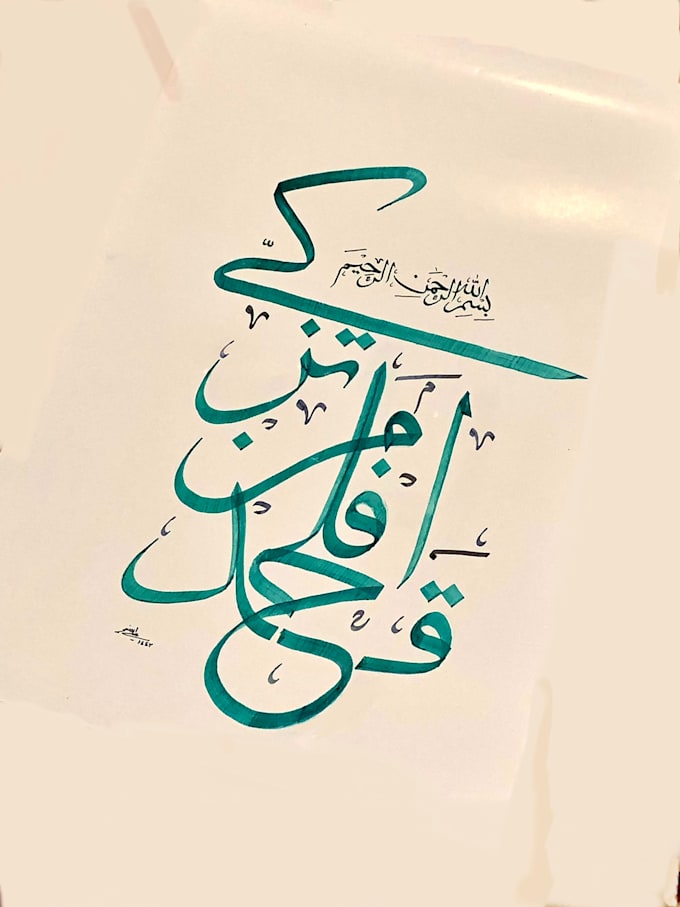 بِسْمِ اللهِ الرَّحْمٰنِ الرَّحِيْمِ
قد أفلح من تزكّى
١٤٤٢